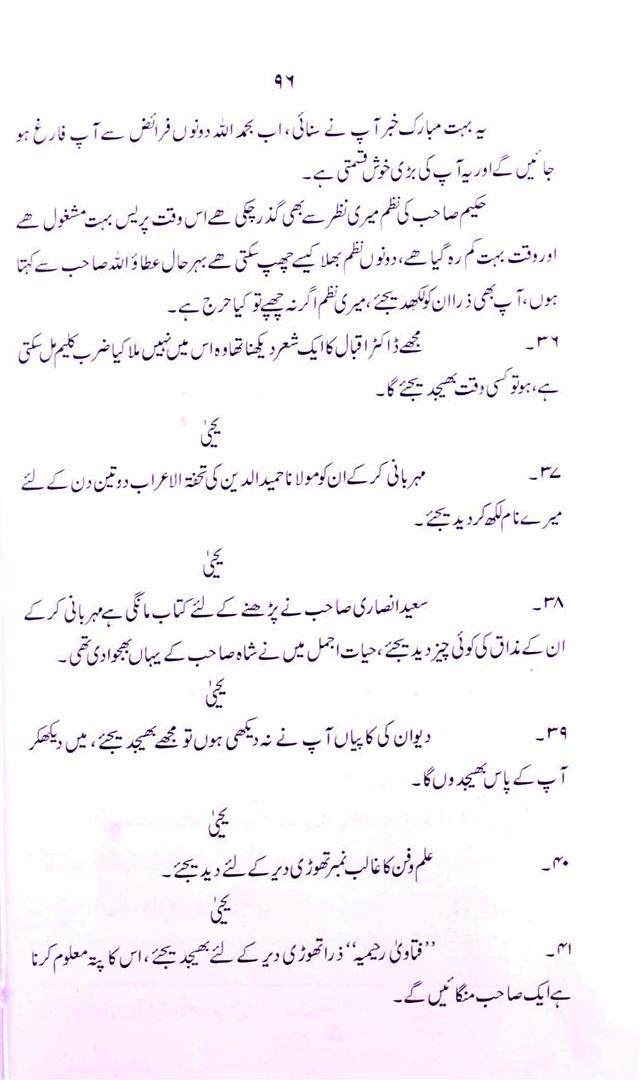 ۹۶
یہ بہت مبارک خبر آپ نے سنائی، اب بحمد اللہ دونوں فرائض سے آپ فارغ ہو
جائیں گے اور یہ آپ کی بڑی خوش قسمتی ہے۔
حکیم صاحب کی نظم میری نظر سے بھی گذر چکی ھے اس وقت پریس بہت مشغول ھے
اور وقت بہت کم رہ گیا ھے، دونوں نظم بھلا کیسے چھپ سکتی ھے بہر حال عطاؤ اللہ صاحب سے کہتا
ہوں، آپ بھی ذرا ان کو لکھد یجئے، میری نظم اگر نہ چھپے تو کیا حرج ہے۔
۳۶۔ مجھے ڈاکٹر اقبال کا ایک شعر دیکھنا تھا وہ اس میں نہیں ملا کیا ضرب کلیم مل سکتی
ہے، ہو تو کسی وقت بھیجد یجئے گا۔
یحیٰ
۳۷۔ مہربانی کر کے ان کو مولانا حمید الدین کی تحفۃ الاعراب دو تین دن کے لئے
میرے نام لکھ کر دید یجئے۔
یحیٰ
۳۸۔ سعید انصاری صاحب نے پڑھنے کے لئے کتاب مانگی ہے مہربانی کر کے
ان کے مذاق کی کوئی چیز دید یجئے، حیات اجمل میں نے شاہ صاحب کے یہاں بھجوا دی تھی۔
یحیٰ
۳۹۔ دیوان کی کاپیاں آپ نے نہ دیکھی ہوں تو مجھے بھیجد یجئے، میں دیکھکر
آپ کے پاس بھیجدوں گا۔
یحیٰ
۴۰۔ علم و فن کا غالب نمبر تھوڑی دیر کے لئے دید یجئے۔
یحیٰ
۴۱۔ ”فتاویٰ رحیمیہ“ ذرا تھوڑی دیر کے لئے بھیجد یجئے، اس کا پتہ معلوم کرنا
ہے ایک صاحب منگائیں گے۔